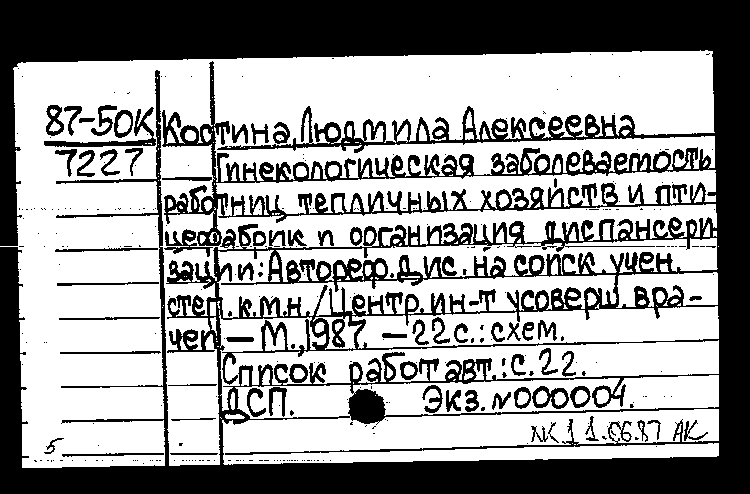 87-50К Костина, Людмила Алексеевна
7227 Гинекологическая заболеваемость
работниц тепличных хозяйств и пти-
цефабрик и организация диспансери-
зации: Автореф. дис. на соиск. учен.
степ. к.м.н. / Центр. ин-т усоверш. вра-
чей. — М., 1987. — 22 с.: схем.
Список работ авт.: с. 22.
ДСП. Экз. №000004.
5 NK 11.06.87 АК